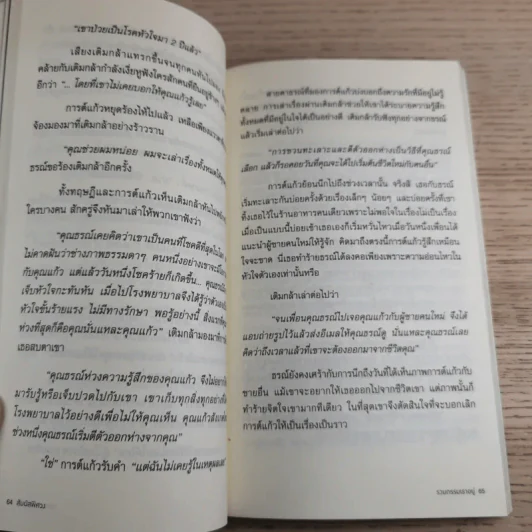 "เขาป่วยเป็นโรคหัวใจมา 2 ปีแล้ว"
เสียงเติมกล้าแทรกขึ้นจนทุกคนหันไปมอง
คล้ายกับเติมกล้ากำลังเงี่ยหูฟังใครสักคนที่ยืนอยู่ข้าง
อีกว่า "... โดยที่เขาไม่เคยบอกให้คุณแก้วรู้เลย"
การต์แก้วหยุดร้องไห้ไปแล้ว เหลือเพียง
จ้องมองมาที่เติมกล้าอย่างร้าวราน
"คุณช่วยผมหน่อย ผมจะเล่าเรื่องทั้งหมดให้
ธรณ์ขอร้องเติมกล้าอีกครั้ง
ทั้งทฤษฎีและการต์แก้วเห็นเติมกล้าหันไป
ใครบางคน สักครู่จึงหันมาเล่าให้พวกเขาฟังว่า
"คุณธรณ์เคยคิดว่าเขาเป็นคนที่โชคดีที่สุดใน
ไม่คาดฝันว่าช่างภาพธรรมดาๆ คนหนึ่งอย่างเขาจะ
กับคุณแก้ว แต่แล้ววันหนึ่งโชคร้ายก็เกิดขึ้น... คุณธรณ์
เจ็บหัวใจกะทันหัน เมื่อไปโรงพยาบาลจึงได้รู้ว่า
หัวใจขั้นร้ายแรง ไม่มีทางรักษา พอรู้อย่างนี้ สิ่งแรกที่
ห่วงที่สุดก็คือคุณนั่นแหละคุณแก้ว" เติมกล้ามองมาที่
เธอสบตาเขา
"คุณธรณ์ห่วงความรู้สึกของคุณแก้ว จึงไม่อยากให้
มารับรู้หรือเจ็บปวดไปกับเขา เขาเก็บทุกสิ่งทุกอย่าง
โรงพยาบาลไว้อย่างดีเพื่อไม่ให้คุณเห็น คุณแก้ว
ช่วงหนึ่งคุณธรณ์เริ่มตีตัวออกห่างจากคุณ"
"ใช่" การต์แก้วรับคำ "แต่ฉันไม่เคยรู้ในเหตุผล
64 สัมผัสพิศวง
สายตาธรณ์ที่มองการต์แก้วบ่งบอกถึงความรักที่มีอยู่ไม่รู้
คลาย การเล่าเรื่องผ่านเติมกล้าช่วยให้เขาได้ระบายความรู้สึก
ทั้งหมดที่มีอยู่ในใจได้เป็นอย่างดี เติมกล้ารับฟังทุกอย่างจากธรณ์
แล้วเริ่มเล่าต่อไปว่า
"การชวนทะเลาะและตีตัวออกห่างเป็นวิธีที่คุณธรณ์
เลือก แล้วก็รอคอยวันที่คุณจะได้ไปเริ่มต้นชีวิตใหม่กับคนอื่น"
การต์แก้วย้อนนึกไปถึงช่วงเวลานั้น จริงสิ เธอกับธรณ์
เริ่มทะเลาะกันบ่อยครั้งด้วยเรื่องเล็กๆ น้อยๆ และบ่อยครั้งที่เขา
ทิ้งเธอไว้ในร้านอาหารคนเดียวเพราะไม่พอใจในเรื่องไม่เป็นเรื่อง
เมื่อเป็นแบบนี้บ่อยเข้าเธอเองก็เริ่มหวั่นไหวเมื่อวันหนึ่งเพื่อนได้
แนะนำผู้ชายคนใหม่ให้รู้จัก คิดมาถึงตรงนี้การต์แก้วรู้สึกเหมือน
ใจจะขาด นี่เธอทำร้ายธรณ์ได้ลงคอเพียงเพราะความอ่อนไหวใน
หัวใจตัวเองเท่านั้นหรือ
เติมกล้าเล่าต่อไปว่า
"จนเพื่อนคุณธรณ์ไปเจอคุณแก้วกับผู้ชายคนใหม่ จึงได้
แอบถ่ายรูปไว้แล้วส่งอีเมลให้คุณธรณ์ดู นั่นแหละคุณธรณ์เลย
คิดว่าถึงเวลาแล้วที่เขาจะต้องออกมาจากชีวิตคุณ"
ธรณ์ยังคงเศร้ากับการนึกถึงวันที่ได้เห็นภาพการต์แก้วกับ
ชายอื่น แม้เขาจะอยากให้เธอออกไปจากชีวิตเขา แต่ภาพนั้นก็
ทำร้ายจิตใจเขามากทีเดียว ในที่สุดเขาจึงตัดสินใจที่จะบอกเลิก
การต์แก้วให้เป็นเรื่องเป็นราว
รวมกรรมฆาตกู่ 65